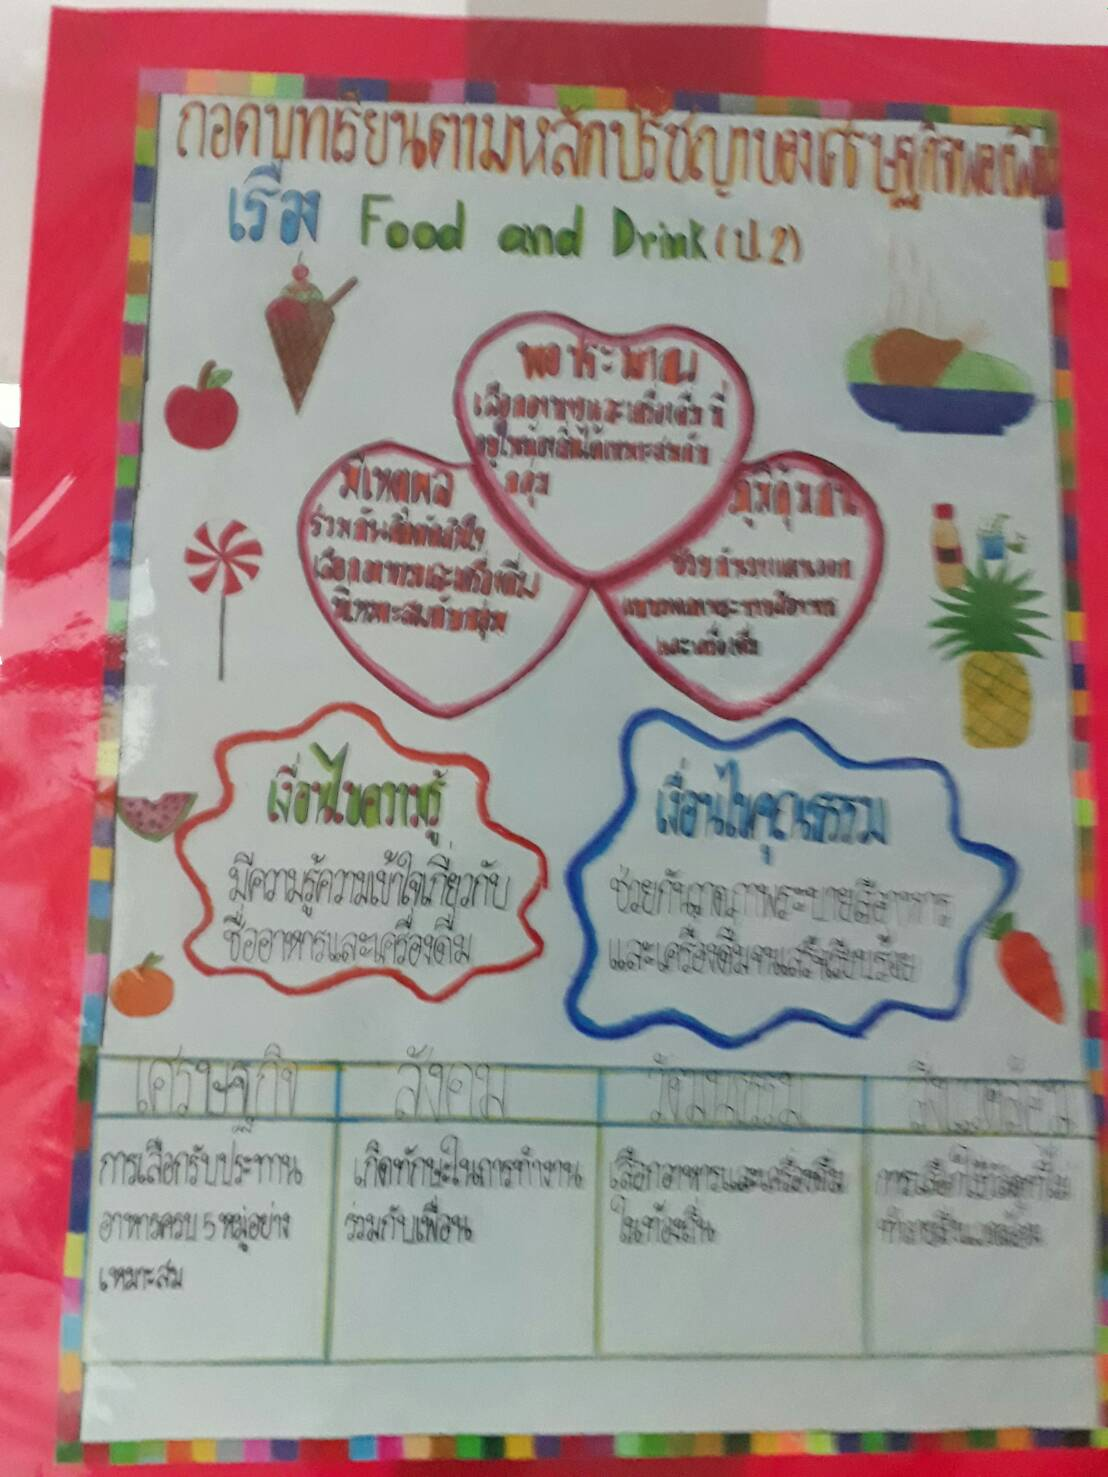 ถอดบทเรียนตามหลักปรัชญาของเศรษฐกิจพอเพียง
เรื่อง Food and Drink (ป.2)
พอประมาณ
เลือกอาหารและเครื่องดื่มที่
อยู่ในท้องถิ่นได้เหมาะสมกับ
กลุ่ม
มีเหตุผล
ร่วมกันคิดตัดสินใจ
เลือกอาหารและเครื่องดื่ม
ที่เหมาะสมกับกลุ่ม
ภูมิคุ้มกัน
ช่วยกันวางแผนออก
และเครื่องดื่ม
เงื่อนไขความรู้
มีความรู้ความเข้าใจเกี่ยวกับ
ชื่ออาหารและเครื่องดื่ม
เงื่อนไขคุณธรรม
ช่วยกันวาดภาพระบายสีอาหาร
และเครื่องดื่มจนเสร็จเรียบร้อย
เศรษฐกิจ
สังคม
วัฒนธรรม
สิ่งแวดล้อม
การเลือกรับประทาน
อาหารครบ 5 หมู่อย่าง
เหมาะสม
เกิดทักษะในการทำงาน
ร่วมกับเพื่อน
เลือกอาหารและเครื่องดื่ม
ในท้องถิ่น
การเลือกใช้วัสดุที่ไม่
ทำลายสิ่งแวดล้อม